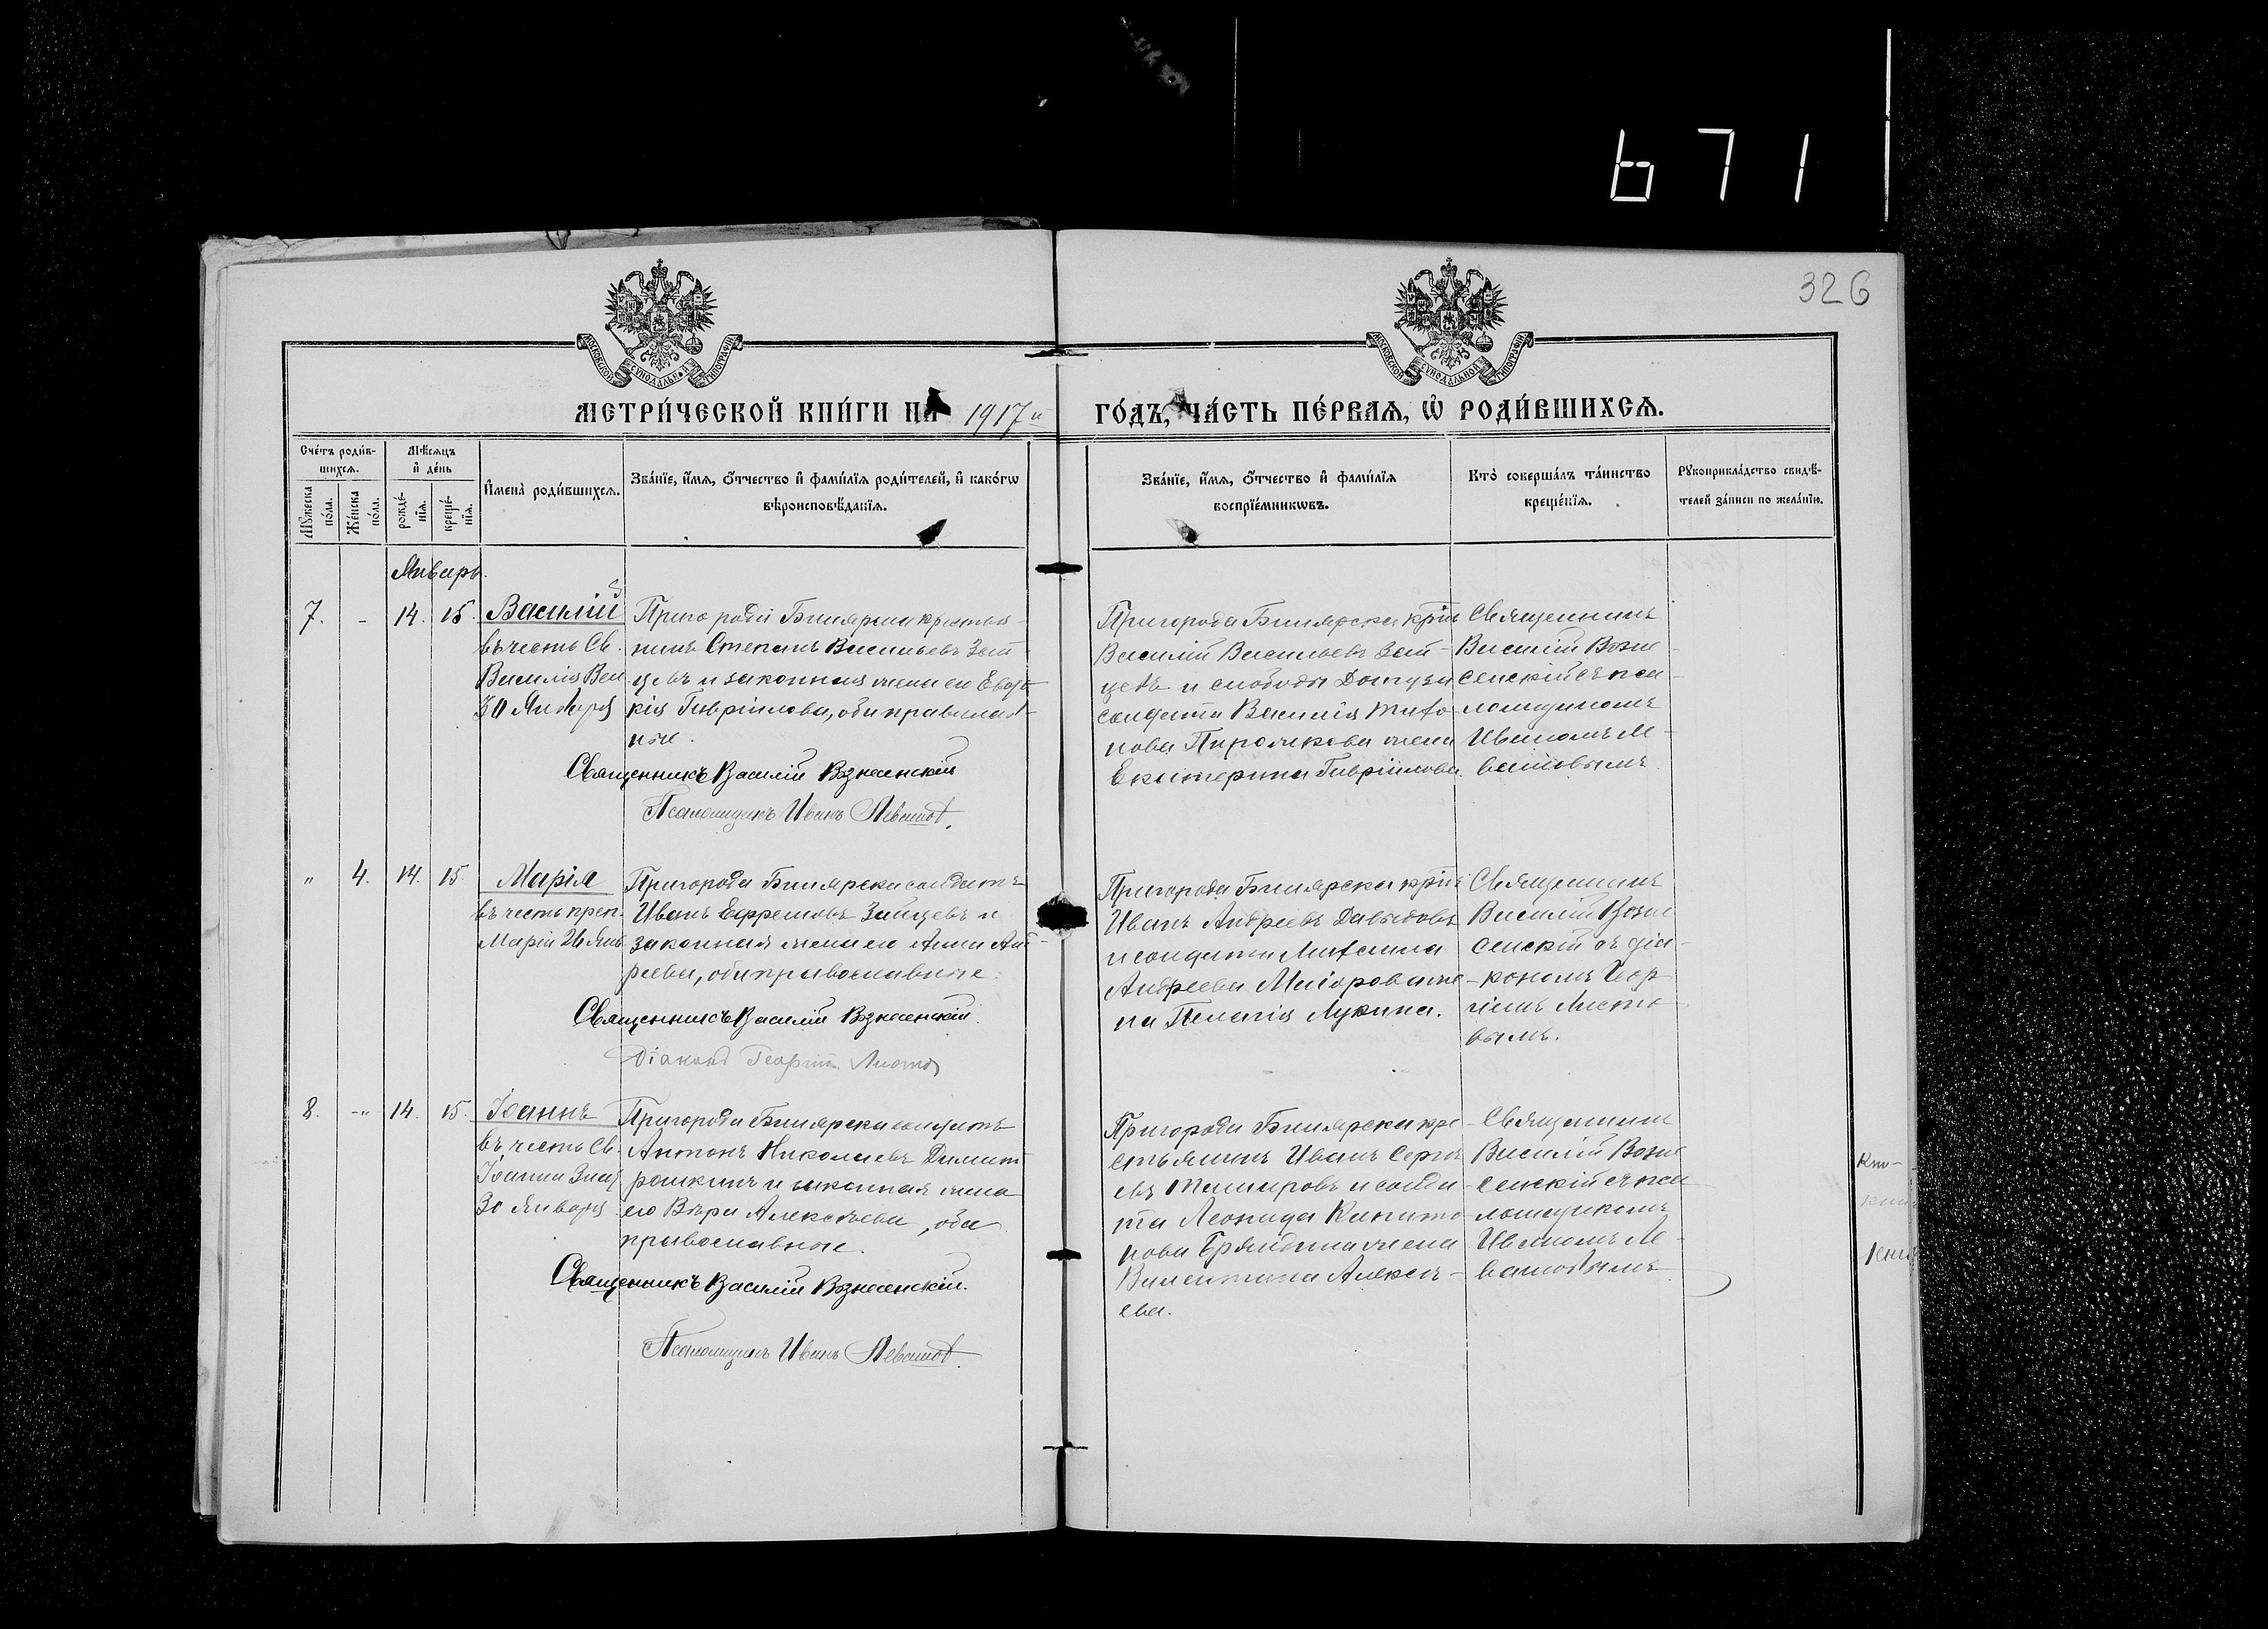 671
326
МОСКОВСКОЙ СУНОДАЛЬНОЙ ТИПОГРАФІИ
МОСКОВСКОЙ СУНОДАЛЬНОЙ ТИПОГРАФІИ
МЕТРИ́ЧЕСКОЙ КНИ́ГИ НА 1917й ГО́ДЪ, ЧА́СТЬ ПЕ́РВАЯ, Ѽ РОДИ́ВШИХСЯ.
Сче́тъ роди́в-
шихся.
Мѣ́сяцъ
и҆ де́нь
Мꙋ́жеска
по́ла.
Же́нска
по́ла.
рожде́-
нїя.
креще́-
нїя.
И҆мена̀ роди́вшихся.
Зва́нїе, и҆́мя, ѻ҆́тчество и҆ фами́лїя роди́телей, и҆ како́гѡ
вѣроисповѣ́данїя.
Зва́нїе, и҆́мя, ѻ҆́тчество и҆ фами́лїя
воспрїе́мникѡвъ.
Кто̀ соверша́лъ та́инство
креще́нїя.
Рꙋкоприкла́дство свидѣ́-
телей за́писи по жела́нїю.
Январь.
7.
-
14.
15.
Василій
въ честь Св.
Василія Вел
30 Января
Пригорода Билярска крестья-
нинъ Степанъ Васильевъ Зай-
цевъ и законная жена его Евдо-
кія Гавріилова, оба православ-
ные.
Священникъ Василій Вознесенскій
Псаломщикъ Иванъ Левашов.
Пригорода Билярска кр̅нъ
Василій Васильевъ Зай-
цевъ и слободы
солдата Василія Тихо
нова жена
Екатерина Гавріилова.
Священникъ
Василій Возне-
сенскій съ пса-
ломщикомъ
Иваномъ Ле-
вашовымъ.
"
4.
14.
15.
Марія
въ честь преп.
Маріи 26 Янв.
Пригорода Билярска солдатъ
Иванъ Ефремовъ Зайцевъ и
законная жена его Анна Анд-
реева, оба православные.
Священникъ Василій Вознесенскій.
Діаконъ Георгій Листов
Пригорода Билярска кр̅нъ
Иванъ Андреевъ Давыдовъ
и солдата Михаила
Андреева Маіорова же-
на Пелагія Лукина.
Священникъ
Василій Возне
сенскій съ діа-
кономъ Геор-
гіемъ Листо-
вымъ.
8.
-"
14.
15.
Іоаннъ
въ честь Св.
Іоанна Злат
30 Января
Пригорода Билярска солдатъ
Антонъ Николаевъ Димит
рашкинъ и законная жена
его Вѣра Алексѣева, оба
православные.
Священникъ Василій Вознесенскій.
Псаломщикъ Иванъ Левашов.
Пригорода Билярска кре-
стьянинъ Иванъ Сергѣ
евъ и солда-
та Леонида Капито-
нова жена
Валентина Алексѣ-
ева.
Священникъ
Василій Возне
сенскій съ пса
ломщикомъ
Иваномъ Ле-
вашовымъ.